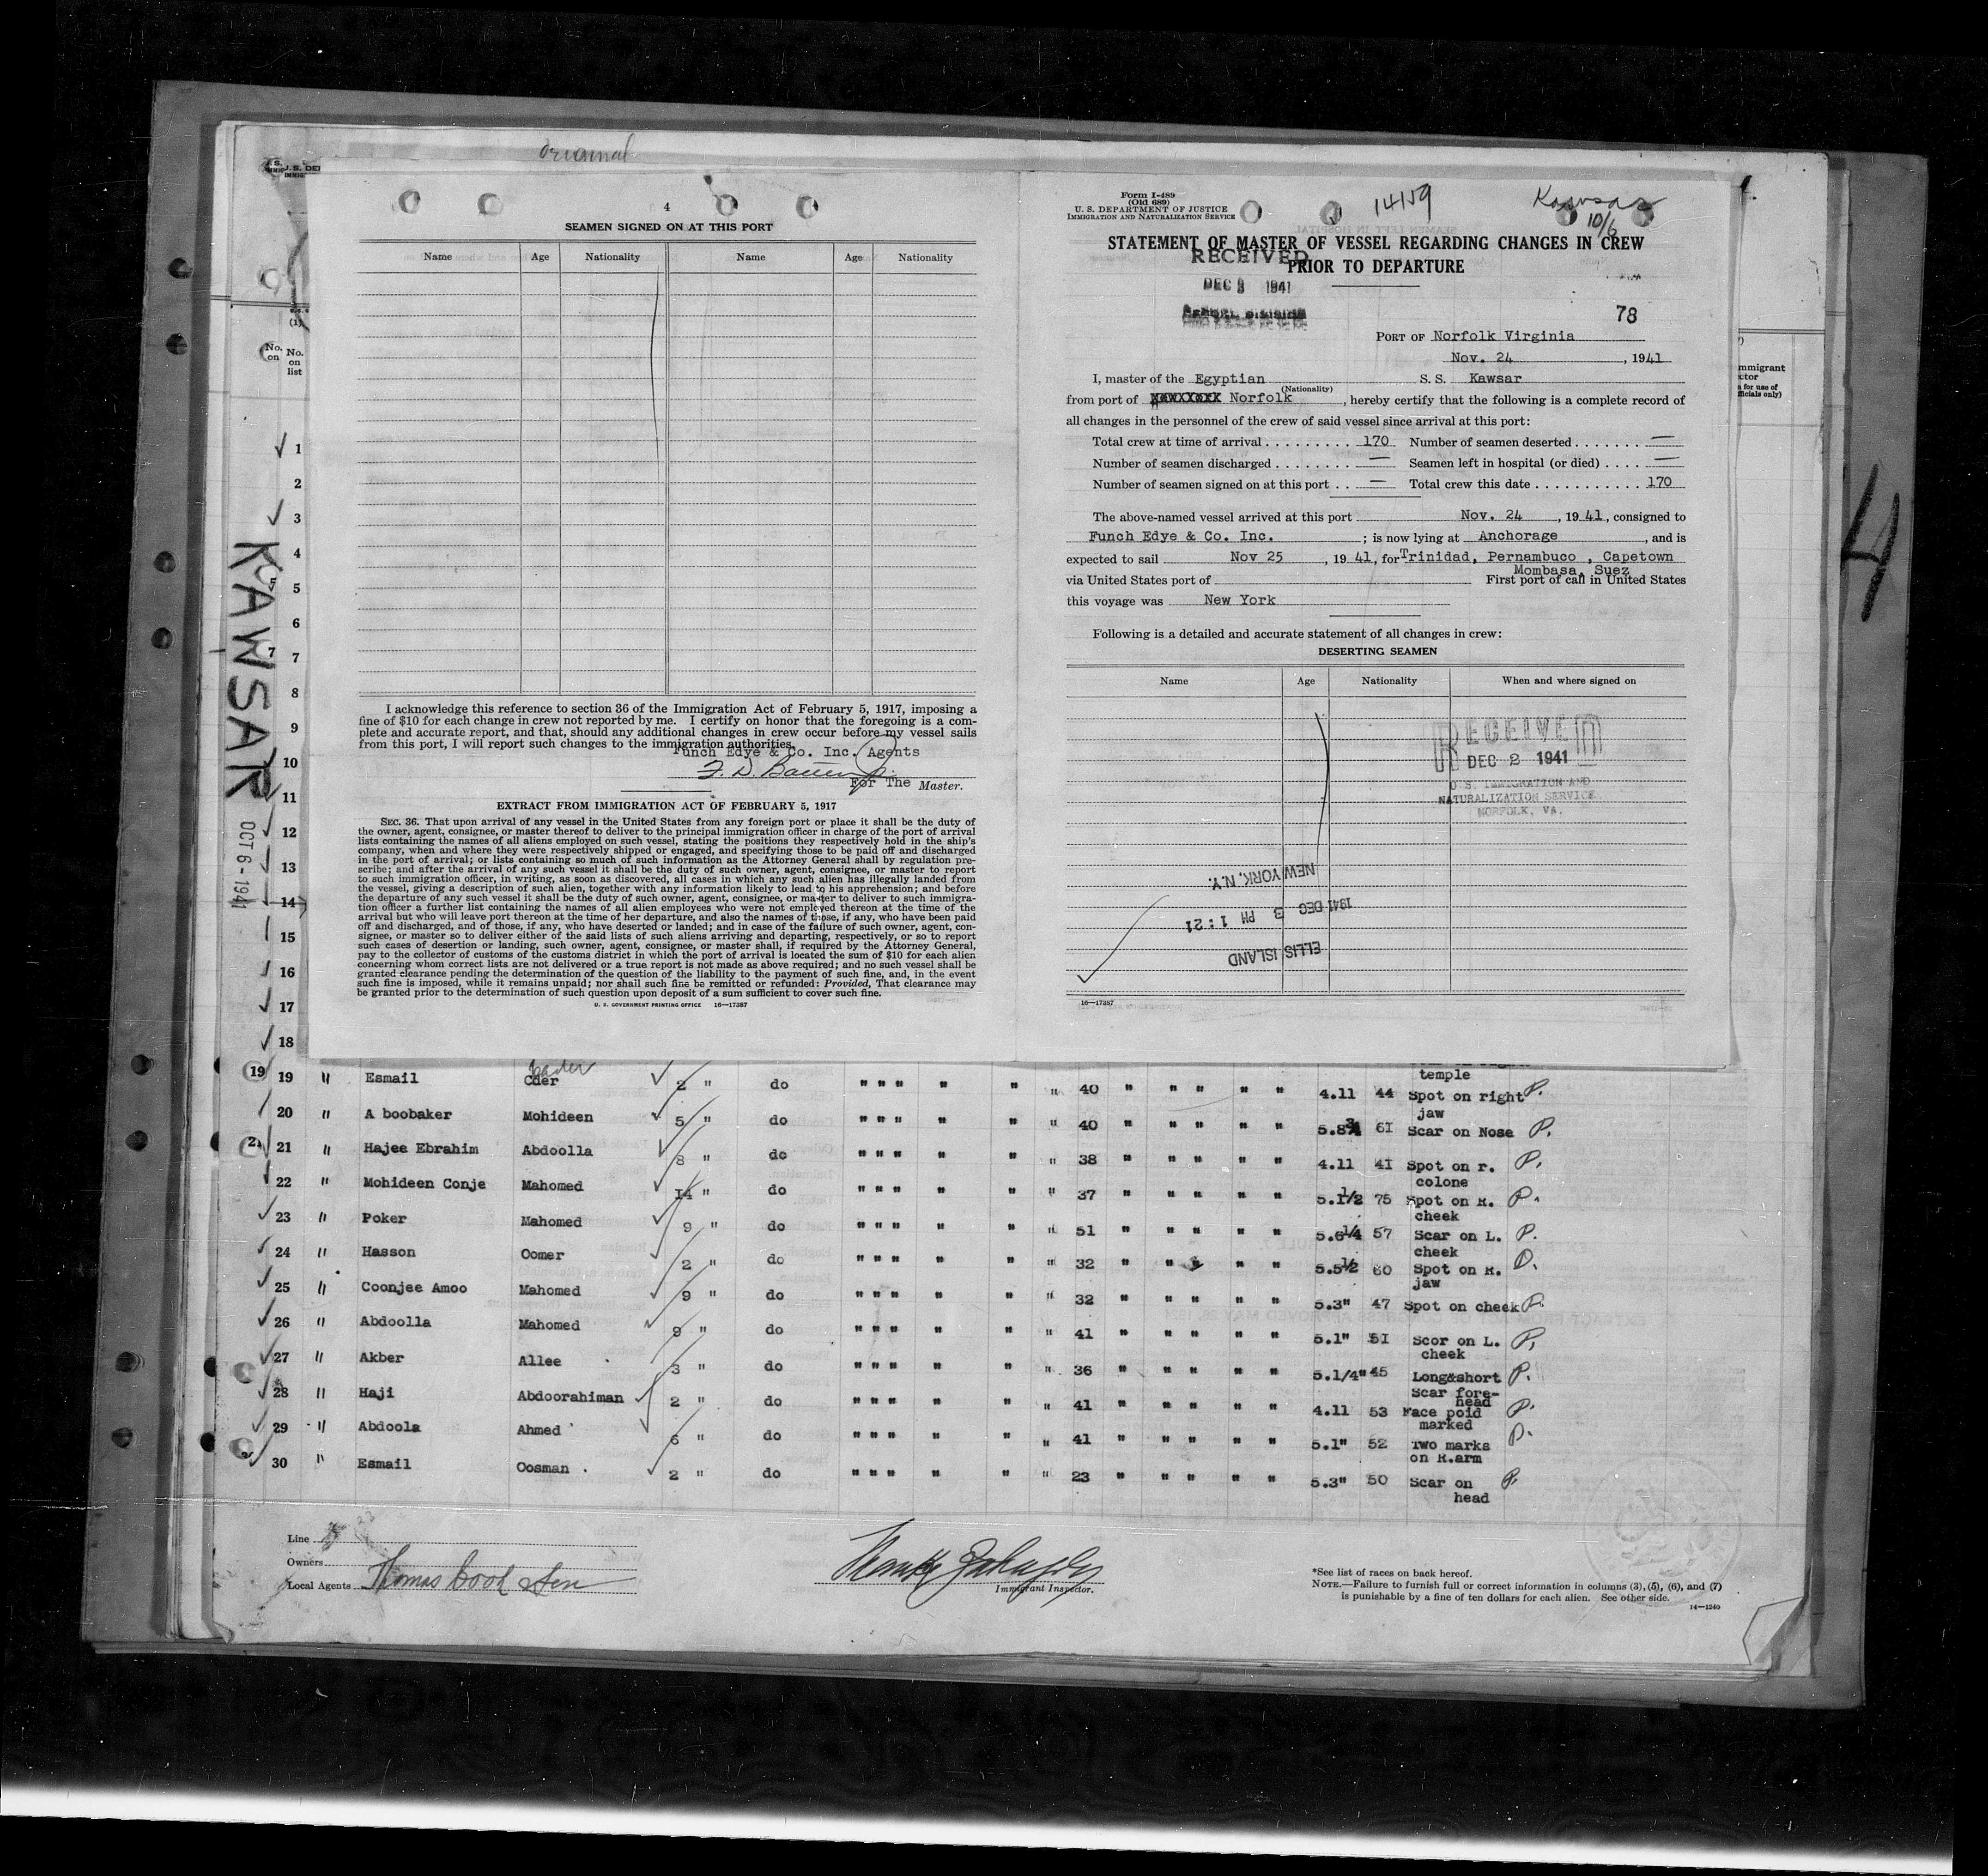 Original
4
SEAMEN SIGNED ON AT THIS PORT
Name Age Nationality Name Age Nationality
I acknowledge this reference to section 36 of the Immigration Act of February 5, 1917, imposing a
fine of $10 for each change in crew not reported by me. I certify on honor that the foregoing is a com-
plete and accurate report, and that, should any additional changes in crew occur before my vessel sails
from this port, I will report such changes to the immigration authorities.
Funch Edye & Co. Inc. Agents
For The Master.
EXTRACT FROM IMMIGRATION ACT OF FEBRUARY 5, 1917
SEC. 36. That upon arrival of any vessel in the United States from any foreign port or place it shall be the duty of
the owner, agent, consignee, or master thereof to deliver to the principal immigration officer in charge of the port of arrival
lists containing the names of all aliens employed on such vessel, stating the positions they respectively hold in the ship's
company, when and where they were respectively shipped or engaged, and specifying those to be paid off and discharged
in the port of arrival; or lists containing so much of such information as the Attorney General shall by regulation pre-
scribe; and after the arrival of any such vessel it shall be the duty of such owner, agent, consignee, or master to report
to such immigration officer, in writing, as soon as discovered, all cases in which any such alien has illegally landed from
the vessel, giving a description of such alien, together with any information likely to lead to his apprehension; and before
the departure of any such vessel it shall be the duty of such owner, agent, consignee, or master to deliver to such immigra-
tion officer a further list containing the names of all alien employees who were not employed thereon at the time of the
arrival but who will leave port thereon at the time of her departure, and also the names of those, if any, who have been paid
off and discharged, and of those, if any, who have deserted or landed; and in case of the failure of such owner, agent, con-
signee, or master so to deliver either of the said lists of such aliens arriving and departing, respectively, or so to report
such cases of desertion or landing, such owner, agent, consignee, or master shall, if required by the Attorney General,
pay to the collector of customs of the customs district in which the port of arrival is located the sum of $10 for each alien
concerning whom correct lists are not delivered or a true report is not made as above required; and no such vessel shall be
granted clearance pending the determination of the question of the liability to the payment of such fine, and, in the event
such fine is imposed, while it remains unpaid; nor shall such fine be remitted or refunded: Provided, That clearance may
be granted prior to the determination of such question upon deposit of a sum sufficient to cover such fine.
U. S. GOVERNMENT PRINTING OFFICE 16—17387
Form I-489
(Old 689)
U. S. DEPARTMENT OF JUSTICE
IMMIGRATION AND NATURALIZATION SERVICE
14159
Kawsar
10/6
STATEMENT OF MASTER OF VESSEL REGARDING CHANGES IN CREW
PRIOR TO DEPARTURE
RECEIVED
DEC 3 1941
78
PORT OF Norfolk Virginia
Nov. 24, 1941
I, master of the Egyptian S. S. Kawsar
(Nationality)
from port of Norfolk, hereby certify that the following is a complete record of
all changes in the personnel of the crew of said vessel since arrival at this port:
Total crew at time of arrival 170 Number of seamen deserted —
Number of seamen discharged — Seamen left in hospital (or died) —
Number of seamen signed on at this port — Total crew this date 170
The above-named vessel arrived at this port Nov. 24, 1941, consigned to
Funch Edye & Co. Inc.; is now lying at Anchorage, and is
expected to sail Nov 25, 1941, for Trinidad, Pernambuco, Capetown
Mombasa, Suez
via United States port of First port of call in United States
this voyage was New York
Following is a detailed and accurate statement of all changes in crew:
DESERTING SEAMEN
Name Age Nationality When and where signed on
RECEIVED
DEC 2 1941
U.S. IMMIGRATION AND
NATURALIZATION SERVICE
NORFOLK, VA.
ELLIS ISLAND
1941 DEC 3 PM 1:21
NEW YORK, N.Y.
16—17387
No. on list
KAWSAR
OCT 6 - 1941
4
1
2
3
4
5
6
7
8
9
10
11
12
13
14
15
16
17
18
temple
19 " Esmail Cder 2 " do " " " " " " 40 " " " " " 4.11 44 Spot on right jaw P.
20 " A boobaker Mohideen 5 " do " " " " " " 40 " " " " " 61 Scar on Nose P.
21 " Hajee Ebrahim Abdoolla 8 " do " " " " " " 38 " " " " " 4.11 41 Spot on r. colone P.
22 " Mohideen Conje Mahomed 14 " do " " " " " " 37 " " " " " 5.1½ 75 Spot on R. cheek P.
23 " Poker Mahomed 9 " do " " " " " " 51 " " " " " 5.6¼ 57 Scar on L. cheek P.
24 " Hasson Oomer 2 " do " " " " " " 32 " " " " " 5.5½ 60 Spot on R. jaw P.
25 " Coonjee Amoo Mahomed 9 " do " " " " " " 32 " " " " " 5.3" 47 Spot on cheek P.
26 " Abdoolla Mahomed 9 " do " " " " " " 41 " " " " " 5.1" 51 Scor on L. cheek P.
27 " Akber Allee 3 " do " " " " " " 36 " " " " " 5.1/4" 45 Long&short Scar fore-head P.
28 " Haji Abdoorahiman 2 " do " " " " " " 41 " " " " " 4.11 53 Face poid marked P.
29 " Abdoola Ahmed 6 " do " " " " " " 41 " " " " " 5.1" 52 Two marks on R.arm P.
30 " Esmail Oosman 2 " do " " " " " " 23 " " " " " 5.3" 50 Scar on head P.
Line
Owners
Local Agents Thomas Cook & Son
Immigrant Inspector.
*See list of races on back hereof.
NOTE.—Failure to furnish full or correct information in columns (3), (5), (6), and (7)
is punishable by a fine of ten dollars for each alien. See other side.
14—1240